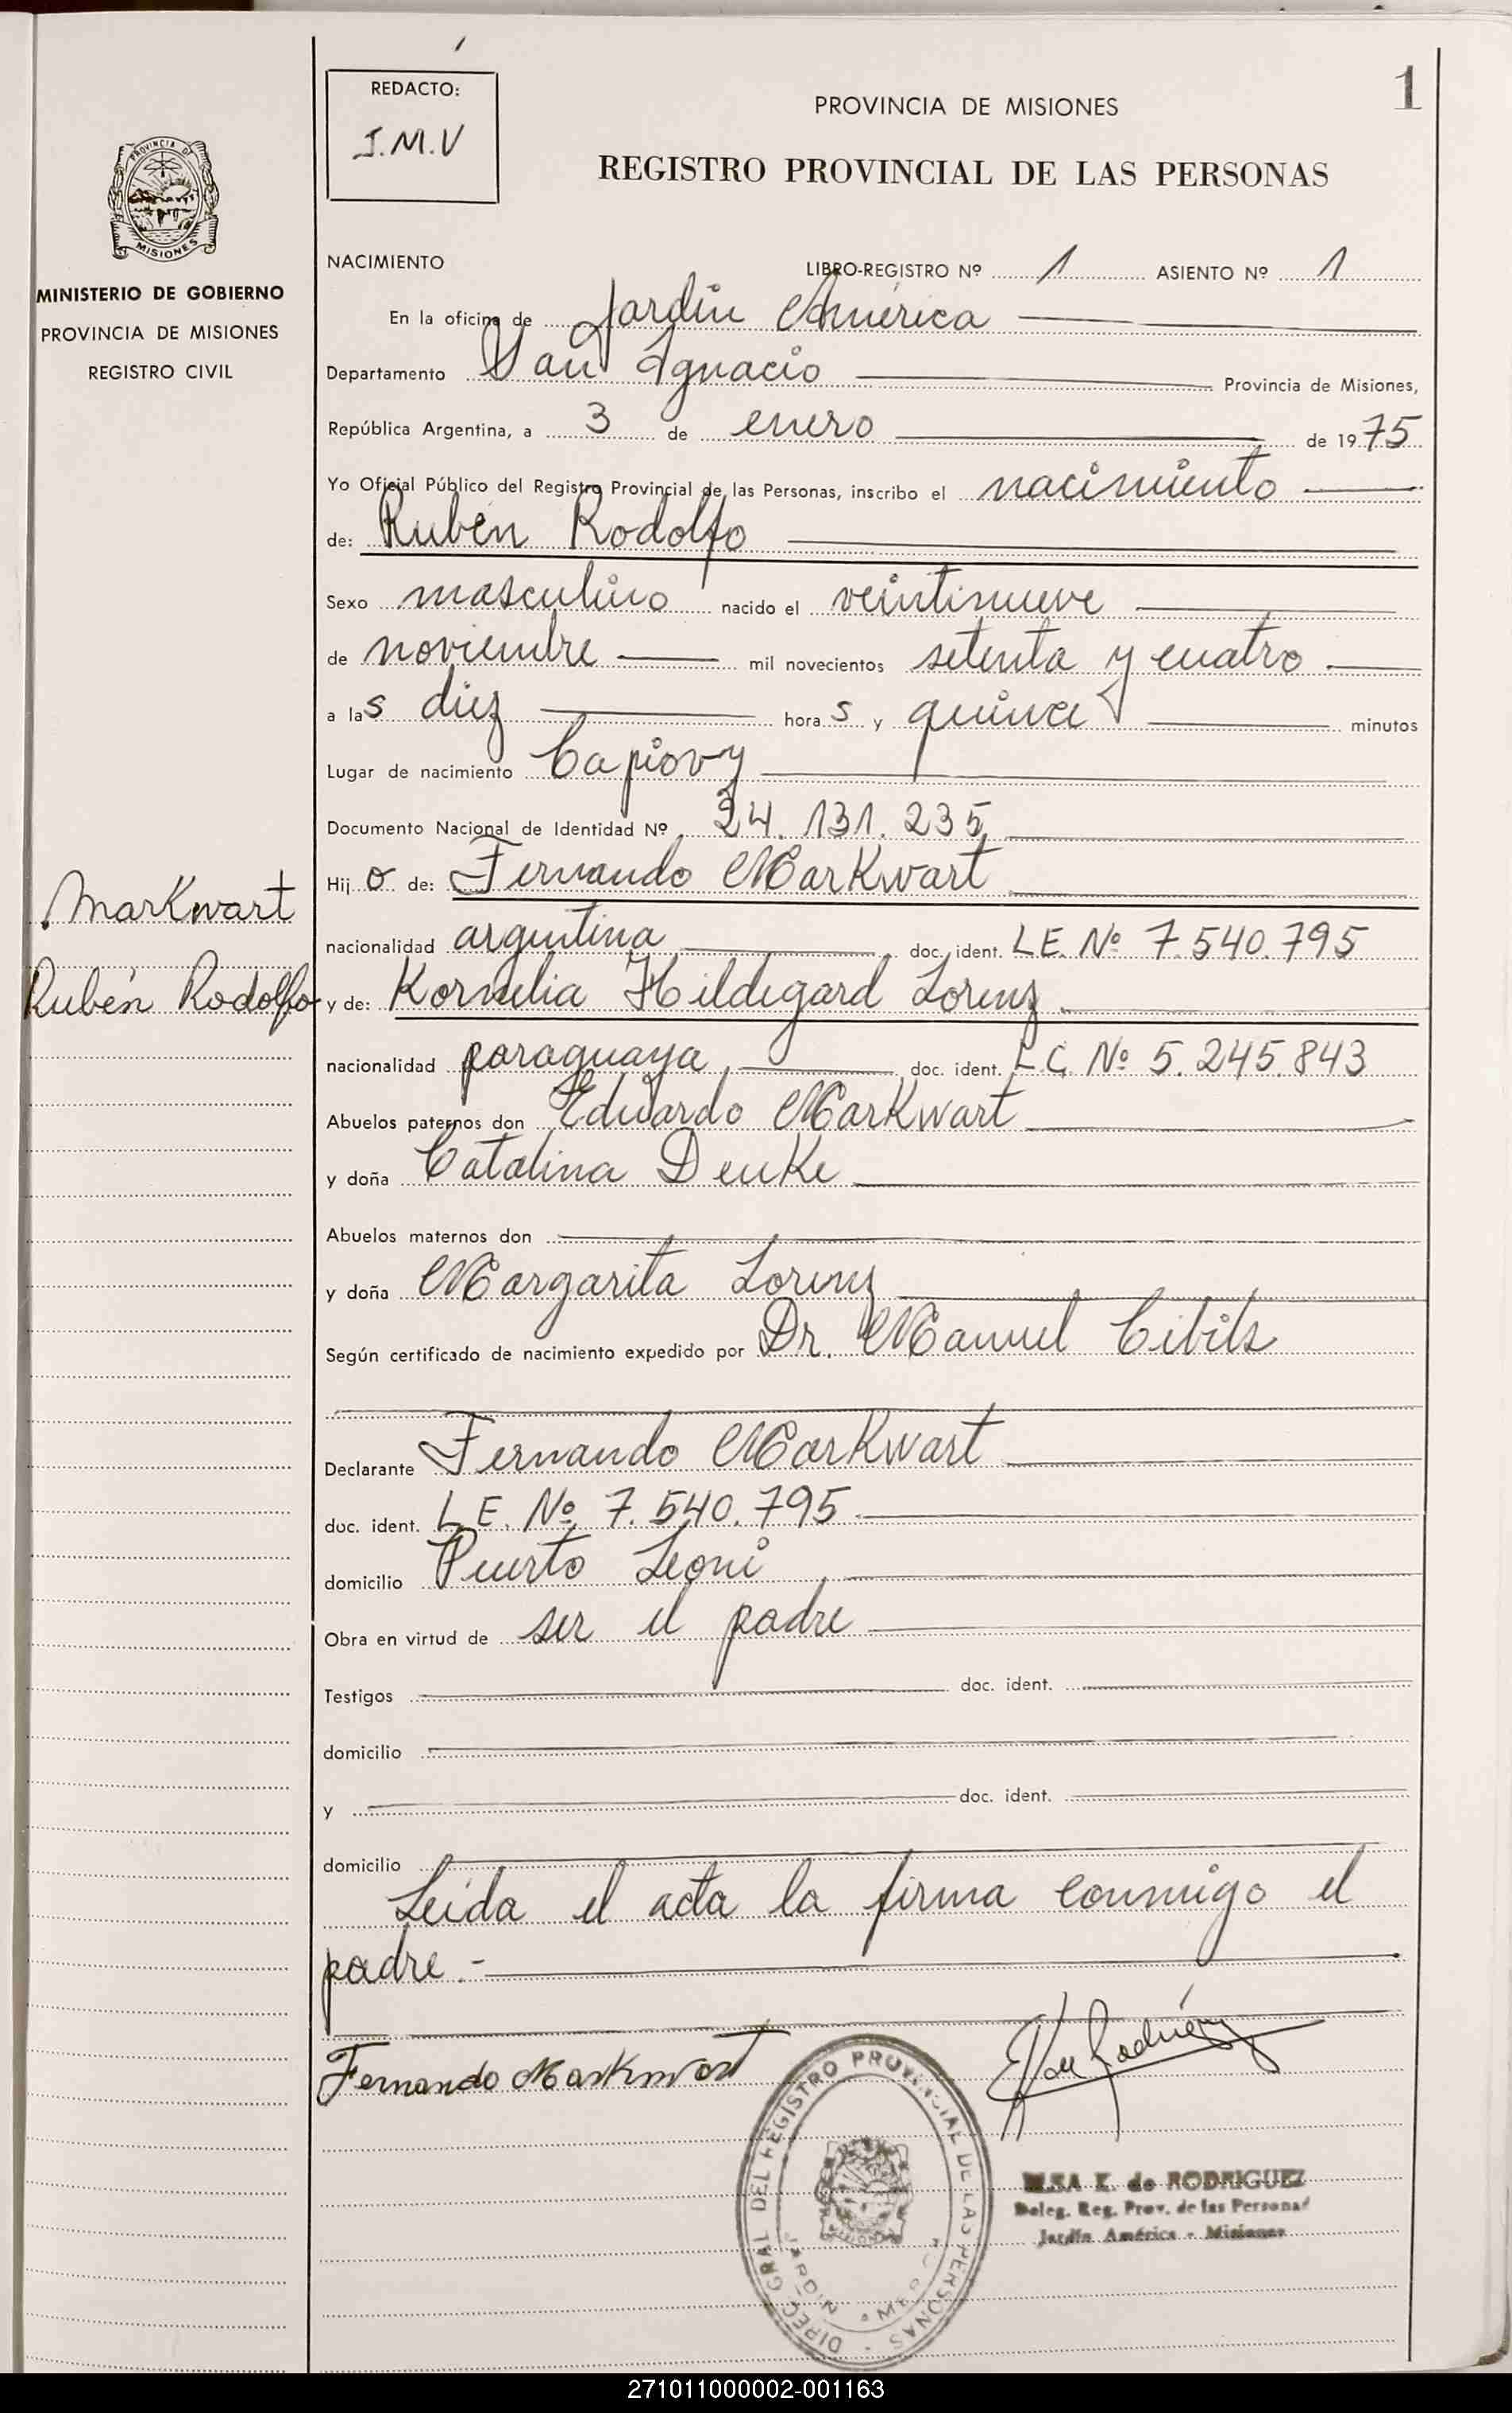 1
REDACTO:
I.M.V
PROVINCIA DE MISIONES
REGISTRO PROVINCIAL DE LAS PERSONAS
PROVINCIA DE
MISIONES
MINISTERIO DE GOBIERNO
PROVINCIA DE MISIONES
REGISTRO CIVIL
NACIMIENTO LIBRO-REGISTRO Nº 1 ASIENTO Nº 1
En la oficina de Jardín América
Departamento San Ignacio Provincia de Misiones,
República Argentina, a 3 de enero de 1975
Yo Oficial Público del Registro Provincial de las Personas, inscribo el nacimiento
de: Rubén Rodolfo
Sexo masculino nacido el veintinueve
de noviembre mil novecientos setenta y cuatro
a las diez horas y quince minutos
Lugar de nacimiento Capiovy
Documento Nacional de Identidad Nº 24.131.235
Hijo de: Fernando Markwart
Markwart
nacionalidad argentina doc. ident. L.E. Nº 7.540.795
Rubén Rodolfo
y de: Kornelia Hildegard Lorenz
nacionalidad paraguaya doc. ident. L.C. Nº 5.245.843
Abuelos paternos don Eduardo Markwart
y doña Catalina Deuke
Abuelos maternos don
y doña Margarita Lorenz
Según certificado de nacimiento expedido por Dr. Manuel Cibils
Declarante Fernando Markwart
doc. ident. L.E. Nº 7.540.795
domicilio Puerto Leoni
Obra en virtud de ser el padre
Testigos doc. ident.
domicilio
y doc. ident.
domicilio
Leída el acta la firma conmigo el
padre.-
Fernando Markwart
DIREC. GRAL. DEL REGISTRO PROVINCIAL DE LAS PERSONAS
MISIONES
JARDIN AMERICA
ELSA K. de RODRIGUEZ
Deleg. Reg. Prov. de las Personas
Jardín América - Misiones
271011000002-001163